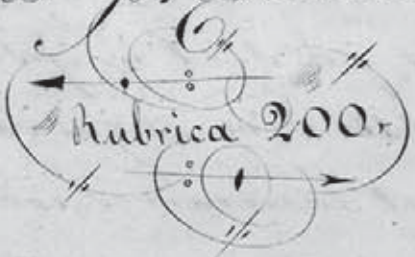 Rubrica 200 r.